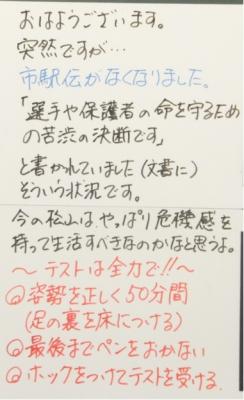 おはようございます。
突然ですが…
市駅伝がなくなりました。
「選手や保護者の命を守るため
の苦渋の決断です」
と書かれていました(文書に)
そういう状況です。
今の松山は、やっぱり危機感を
持って生活すべきなのかなと思うよ。
〜テストは全力で!!〜
◎姿勢を正しく50分間
(足の裏を床につける)
◎最後までペンをおかない
◎ホックをつけてテストを受ける。